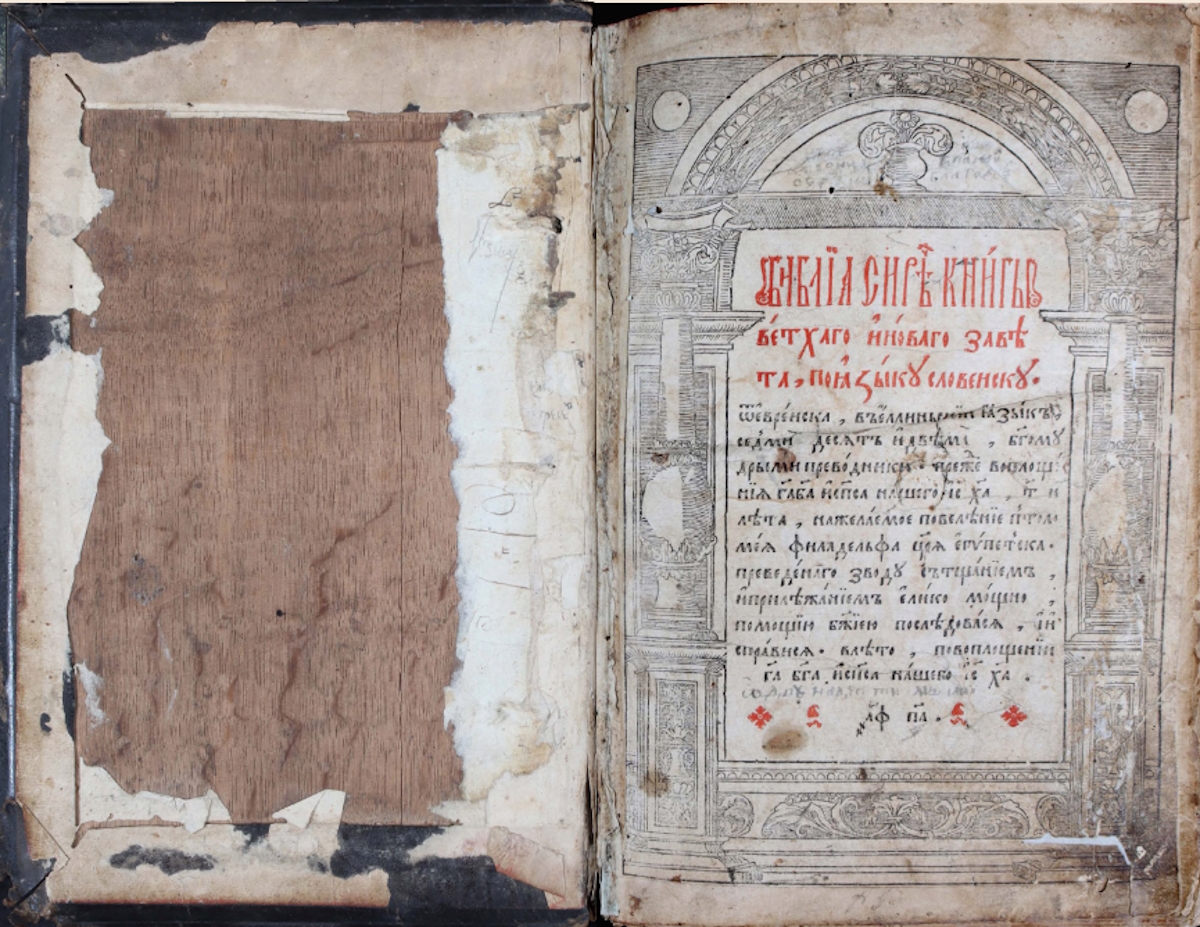 Бибlїа сирѣ книгы
ве́тхаго и но́ваго завѣ
та, по ꙗзы́ку словенску.
ѿ євре́йска, въ є́ллиньскїй ꙗзы́къ,
се́дмїю десѧтъ и двѣмѧ̀, бг҃ому
дрыми прево́дники. пре́же воплоще́
нїѧ гⷭ҇а бг҃а и҆ сп҃са нашего їс҃ ха҃, т҃ и
лѣта, на жела́емое повелѣнїе пто́ло
ме́ѧ филаде́льфа цр҃ѧ є҆гѵ́петска.
преведе́наго зво́ду съ тща́нїемъ,
и҆ прилѣжа́нїемъ є҆ли́ко мо́щно,
помощїю бж҃їею послѣ́довасѧ, и҆ и҆
спра́висѧ. в лѣто, по воплоще́нїи
гⷭ҇а бг҃а и҆ сп҃са на́шего їс҃ ха҃.
҂аф па.